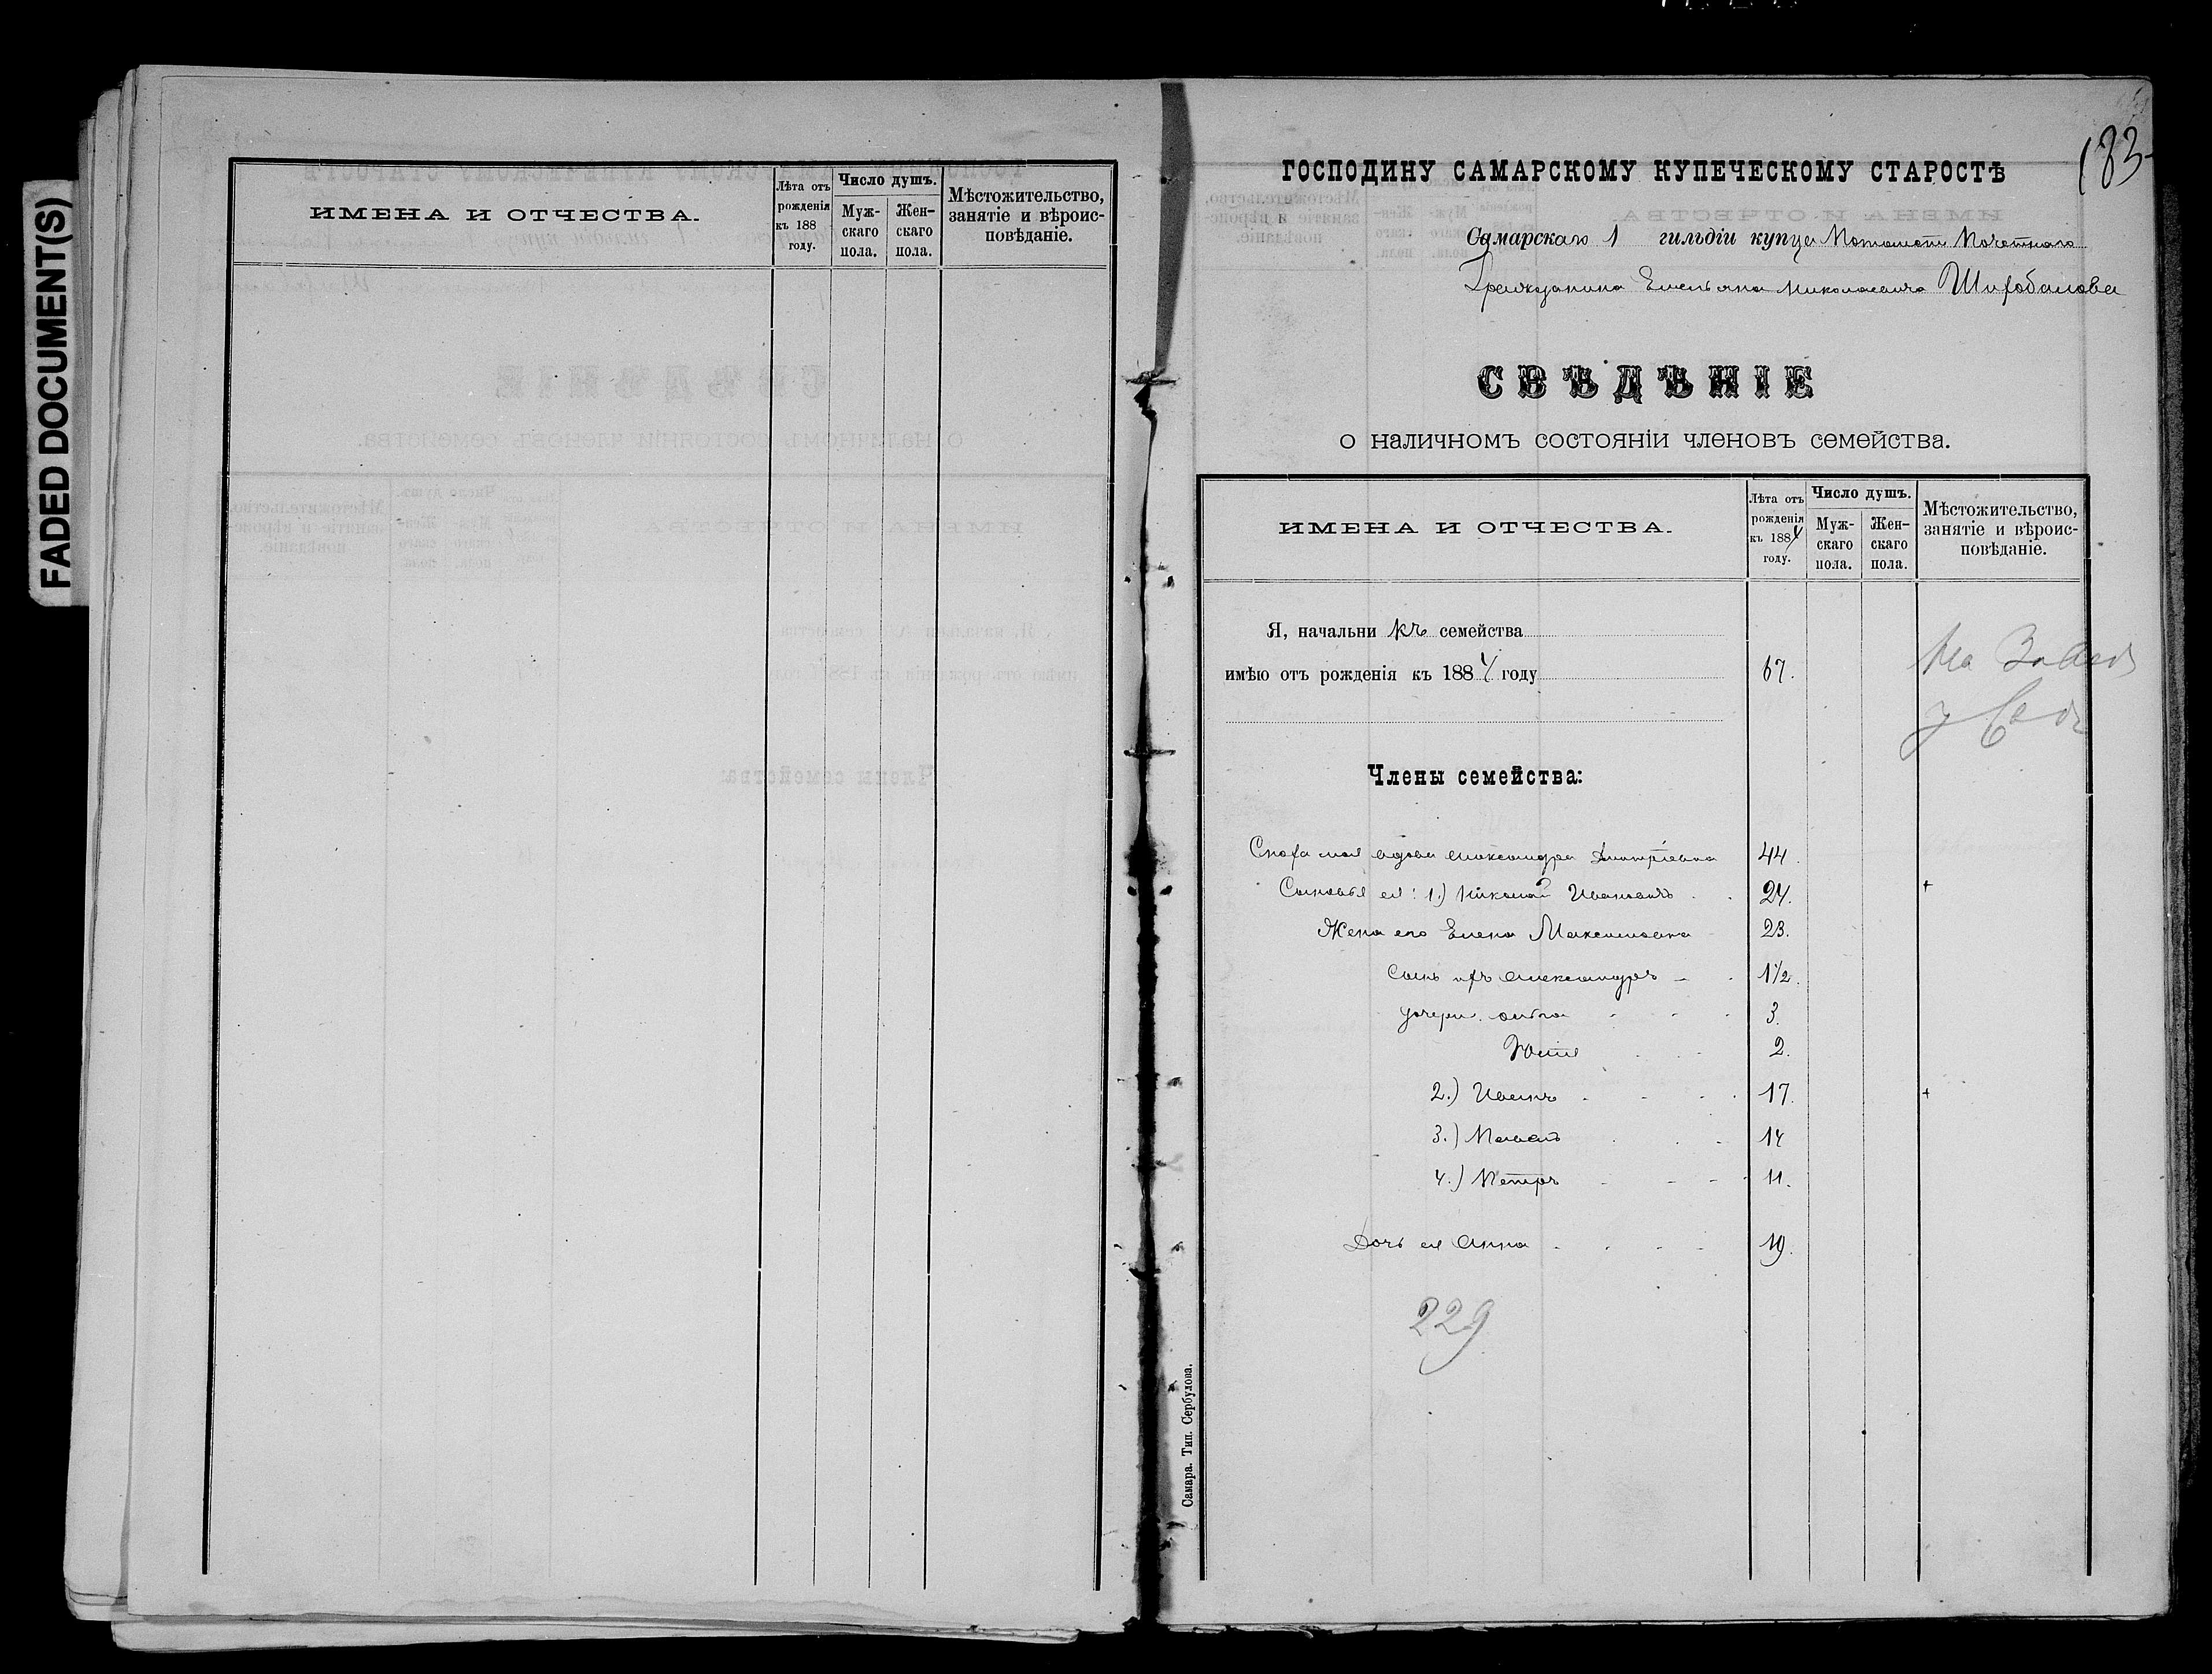 FADED DOCUMENT(S)
ИМЕНА И ОТЧЕСТВА.
Лѣта отъ рожденія къ 188 году.
Число душъ.
Мужскаго пола.
Женскаго пола.
Мѣстожительство, занятіе и вѣроисповѣданіе.
183
ГОСПОДИНУ САМАРСКОМУ КУПЕЧЕСКОМУ СТАРОСТѢ
Самарскаго 1 гильдіи купца Потомств Почетнаго
Гражданина Емельяна Николаевича Шихобалова
СВѢДѢНІЕ
о наличномъ состояніи членовъ семейства.
ИМЕНА И ОТЧЕСТВА.
Лѣта отъ рожденія къ 1884 году.
Число душъ.
Мужскаго пола.
Женскаго пола.
Мѣстожительство, занятіе и вѣроисповѣданіе.
Я, начальникъ семейства
имѣю отъ рожденія къ 1884 году 67.
Члены семейства:
Сноха моя вдова Александра Дмитріевна 44.
Сыновья ея: 1.) Николай Ивановичъ 24. +
Жена его Елена Максимовна 23.
Сынъ ихъ Александръ 1 1/2.
дочери. 3.
Юлія 2.
2.) Иванъ 17. +
3.) Павелъ 14
4.) Петръ 11.
Дочь ея Анна 19.
229
Самара. Тип. Сербулова.